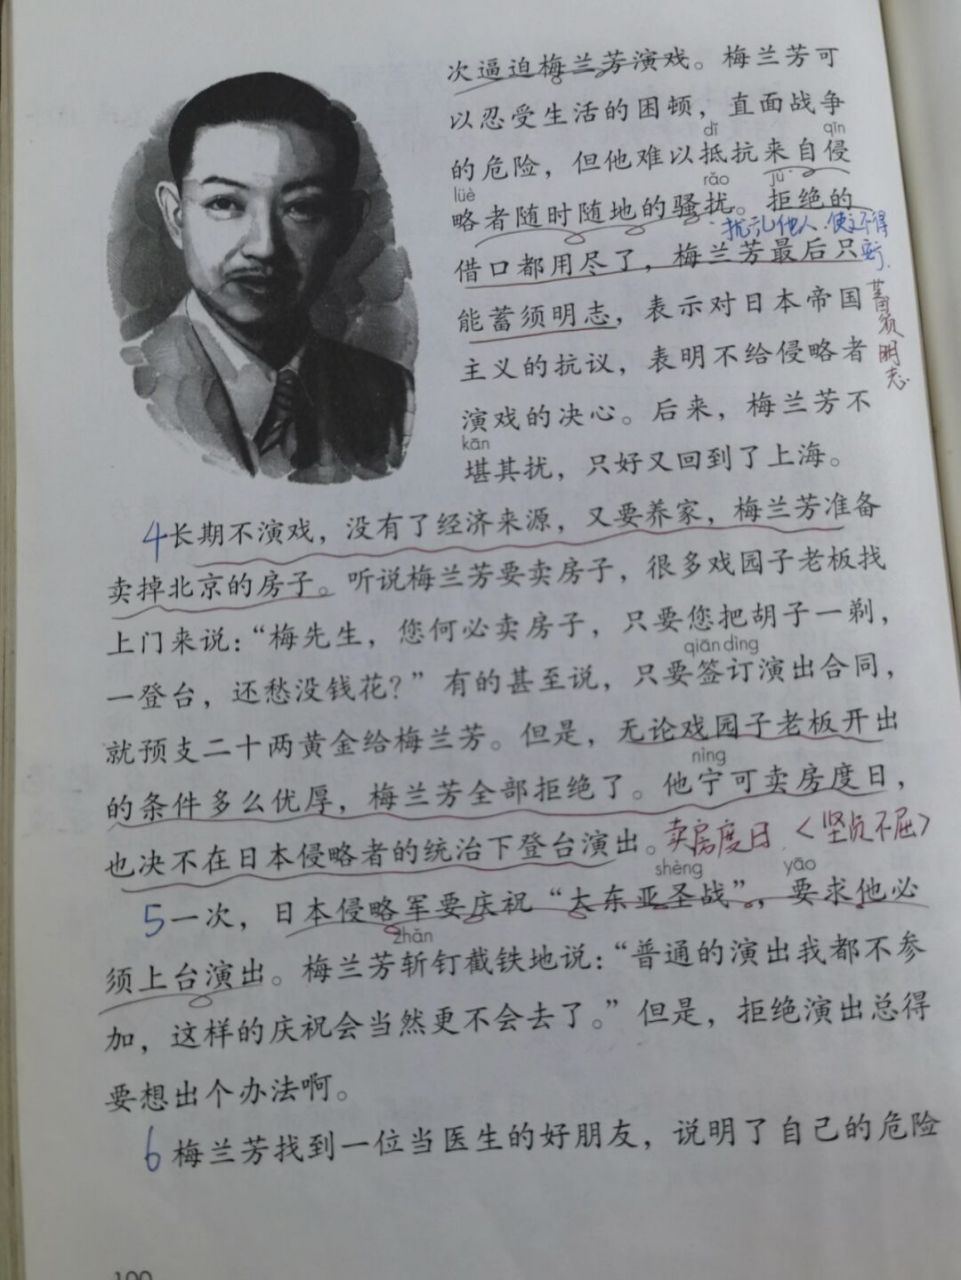 次逼迫梅兰芳演戏。梅兰芳可
以忍受生活的困顿，直面战争
dǐ qīn
的危险，但他难以抵抗来自侵
lüè rǎo jù
略者随时随地的骚扰。拒绝的
扰乱他人，使之不得
借口都用尽了，梅兰芳最后只
安宁.
能蓄须明志，表示对日本帝国
蓄须明志
主义的抗议，表明不给侵略者
演戏的决心。后来，梅兰芳不
kān
堪其扰，只好又回到了上海。
4 长期不演戏，没有了经济来源，又要养家，梅兰芳准备
卖掉北京的房子。听说梅兰芳要卖房子，很多戏园子老板找
上门来说：“梅先生，您何必卖房子，只要您把胡子一剃，
qiān dìng
一登台，还愁没钱花？”有的甚至说，只要签订演出合同，
就预支二十两黄金给梅兰芳。但是，无论戏园子老板开出
nìng
的条件多么优厚，梅兰芳全部拒绝了。他宁可卖房度日，
也决不在日本侵略者的统治下登台演出。卖房度日〈坚贞不屈〉
shèng yāo
5 一次，日本侵略军要庆祝“大东亚圣战”，要求他必
zhǎn
须上台演出。梅兰芳斩钉截铁地说：“普通的演出我都不参
加，这样的庆祝会当然更不会去了。”但是，拒绝演出总得
要想出个办法啊。
6 梅兰芳找到一位当医生的好朋友，说明了自己的危险
100